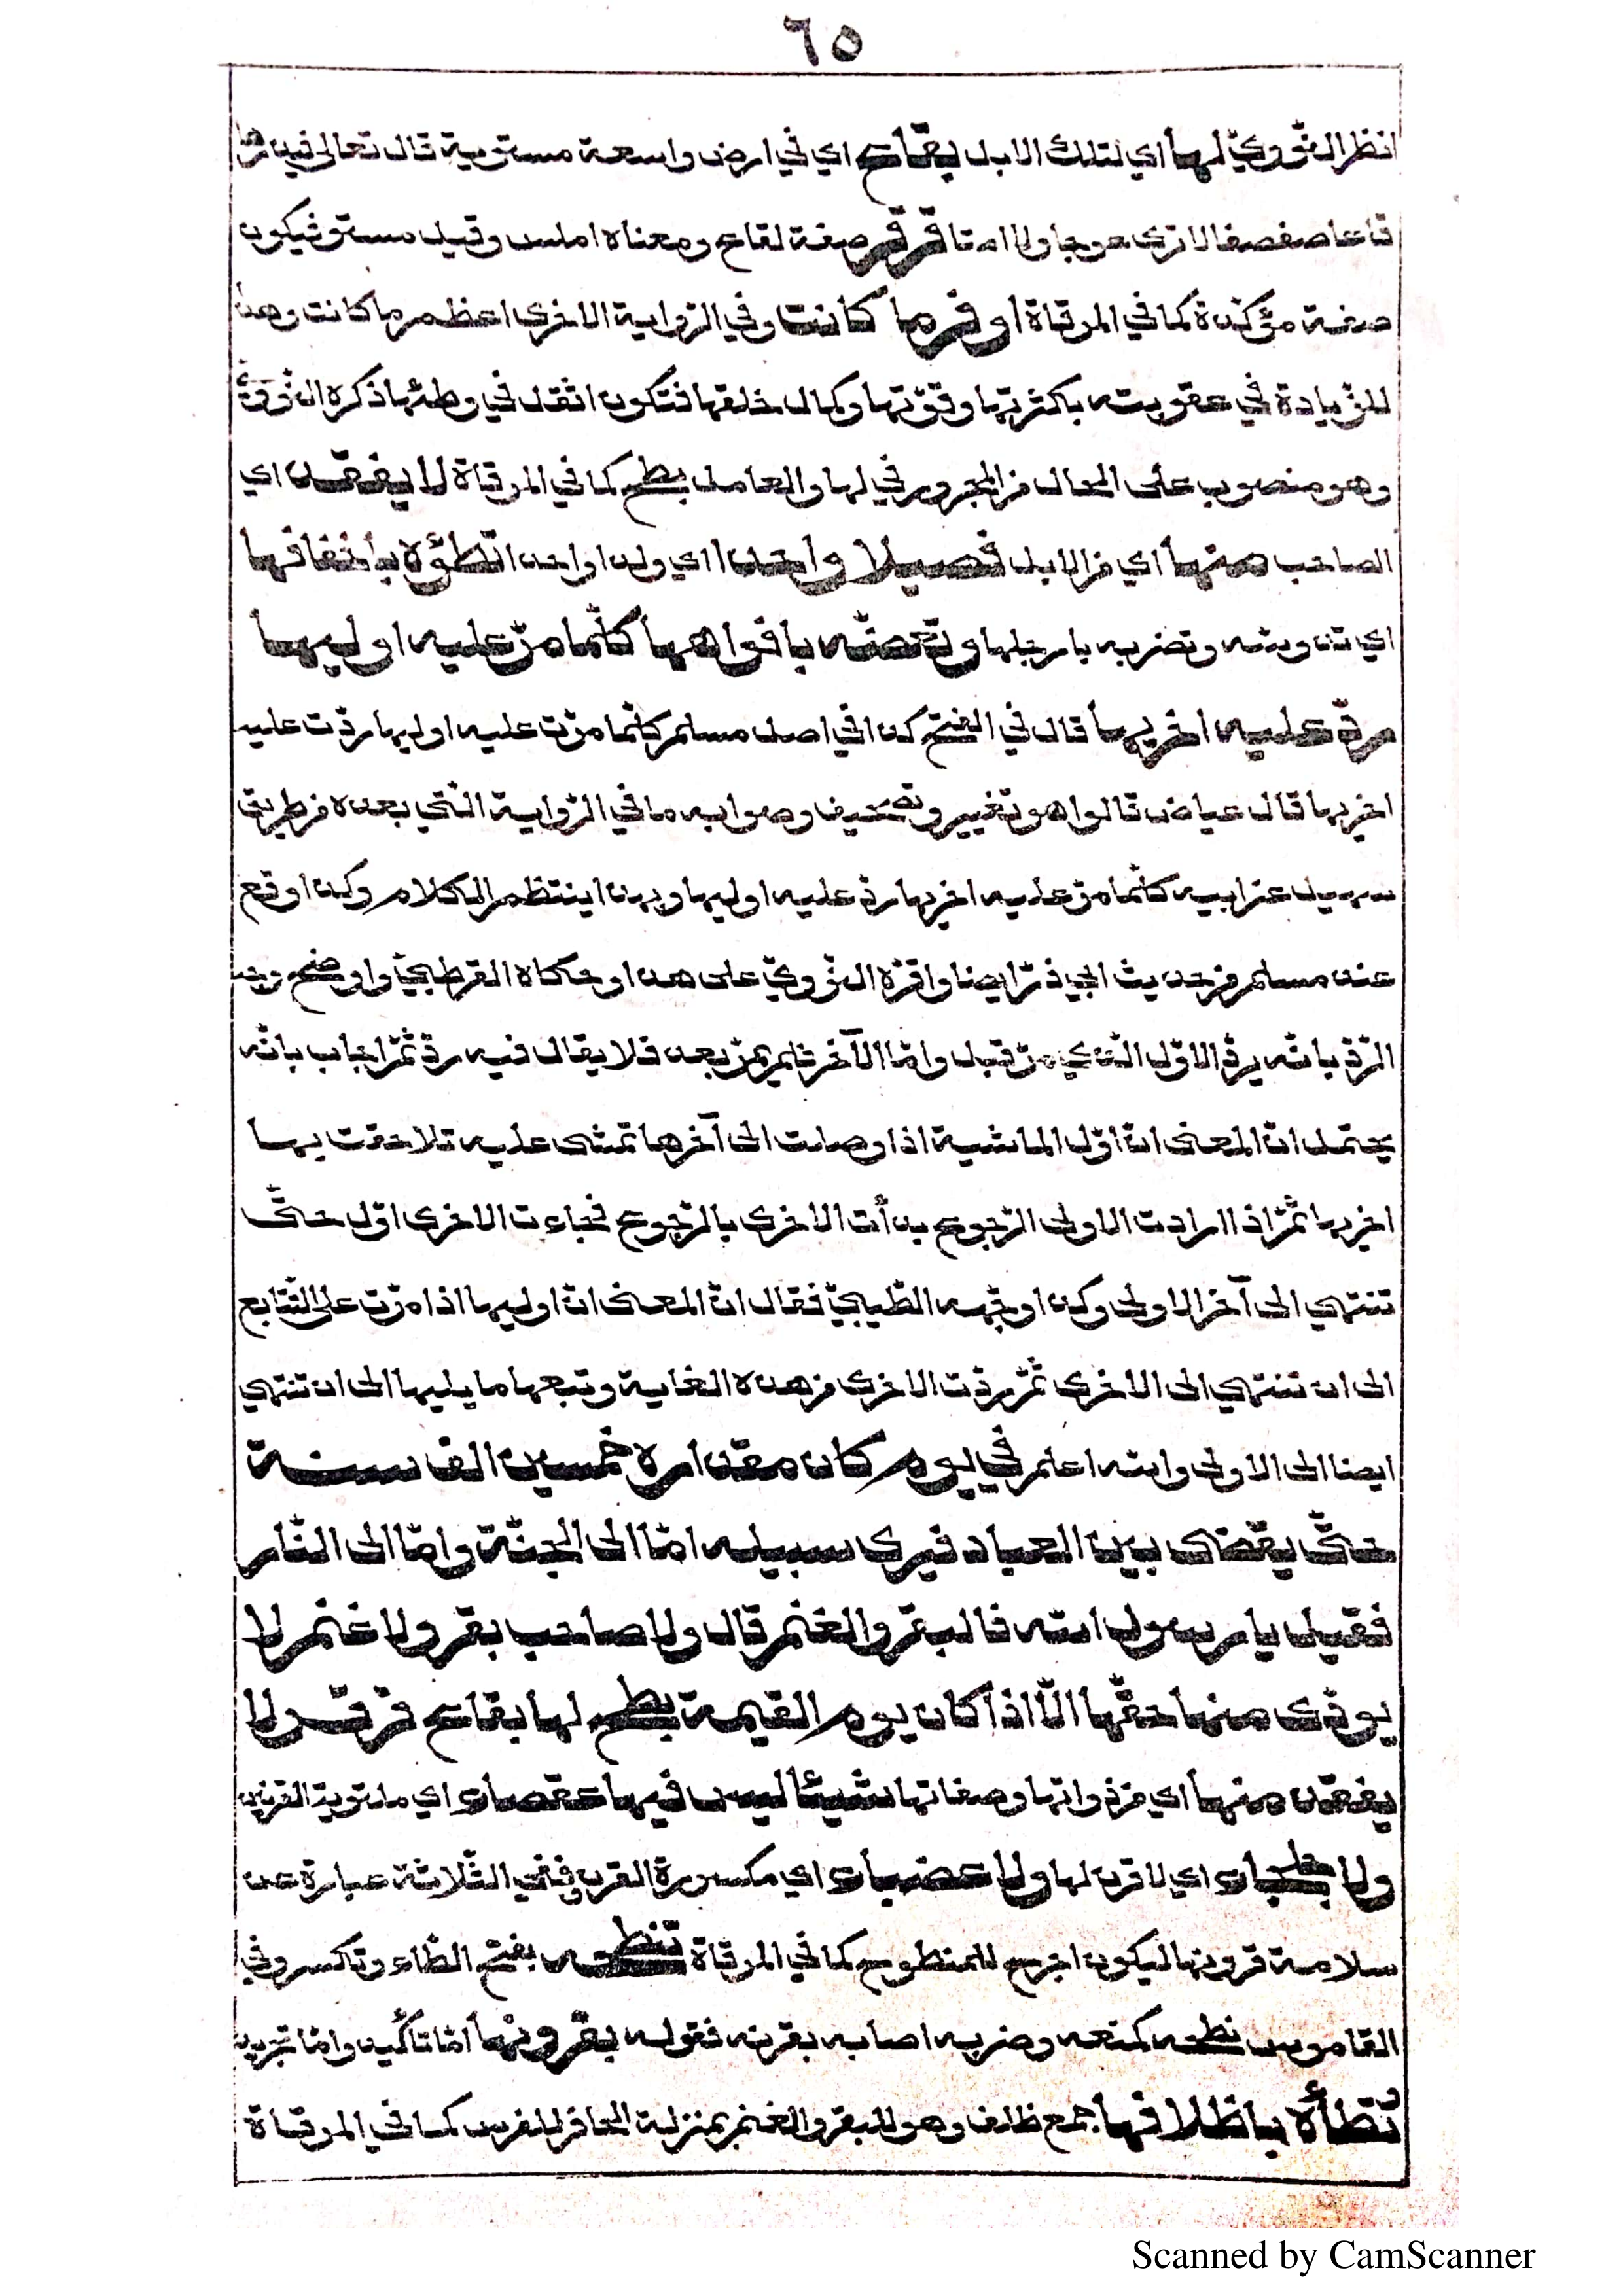 ٦٥
انظر النّوويّ لها اي لتلك الابل بقاع اي في ارض واسعة مستوية قال تعالى فيذرها
قاعا صفصفا لا ترى عوجا ولا امتا قرقر صفة لقاع ومعناه املس وقيل مستو فيكون
صفة مؤكّدة كما في المرقاة اوفر ما كانت وفي الرّواية الاخرى اعظم ما كانت وهذا
للزّيادة في عقوبته بكثرتها وقوّتها وكمال خلقها فتكون اثقل في وطئها ذكره النّوويّ
وهو منصوب على الحال من المجرور في لها والعامل بطح كما في المرقاة لا يفقد اي
الصاحب منها اي من الابل فصيلا واحدا اي ولدا واحدا تطؤه بأخفافها
اي تدوسه وتضربه بارجلها وتعضّه بافواهها كلّما مرّ عليه اوليها
ردّ عليه اخريها قال في الفتح كذا في اصل مسلم كلّما مرّت عليه اوليها ردّت عليه
اخريها قال عياض قالوا هو تغيير وتصحيف وصوابه ما في الرّواية الّتي بعده من طريق
سهيل عن ابيه كلّما مرّ عليه اخريها ردّ عليه اوليها وبهذا ينتظم الكلام وكذا وقع
عند مسلم من حديث ابي ذرّ ايضا واقرّه النّوويّ على هذا وحكاه القرطبيّ واوضح وجه
الرّدّ بانّه يردّ الاوّل الّذي مرّ قبل وامّا الآخر فلم يمرّ بعد فلا يقال فيه ردّ ثمّ اجاب بانّه
يحتمل انّ المعنى انّ اوّل الماشية اذا وصلت الى آخرها تمشى عليه تلاحقت بها
اخريها ثمّ اذا ارادت الاولى الرّجوع بدأت الاخرى بالرّجوع فجاءت الاخرى اوّل حتّى
تنتهي الى آخر الاولى وكذا وجّهه الطّيبيّ فقال انّ المعنى انّ اوليها اذا مرّت على التّتابع
الى ان تنتهي الى الاخرى ثمّ ردّت الاخرى من هذه الغاية وتبعها ما يليها الى ان تنتهي
ايضا الى الاولى والله اعلم في يوم كان مقداره خمسين الف سنة
حتّى يقضى بين العباد فيرى سبيله امّا الى الجنّة وامّا الى النّار
فقيل يا رسول الله فالبقر والغنم قال ولا صاحب بقر ولا غنم لا
يؤدّى منها حقّها الّا اذا كان يوم القيمة بطح لها بقاع قرقر ولا
يفقد منها اي من ذواتها وصفاتها شيئا ليس فيها عقصاء اي ملتوية القرنين
ولا جلحاء اي لا قرن لها ولا عضباء اي مكسورة القرن ونفي الثّلاثة عبارة عن
سلامة قرونها ليكون اجرح للمنطوح كما في المرقاة تنطحه بفتح الطّاء وتكسر وفي
القاموس نطحه كمنعه وضربه اصابه بقرنه فقوله بقرونها امّا تأكيد وامّا تجريد
تطأه باظلافها جمع ظلف وهو للبقر والغنم بمنزلة الحافر للفرس كما في المرقاة
Scanned by CamScanner